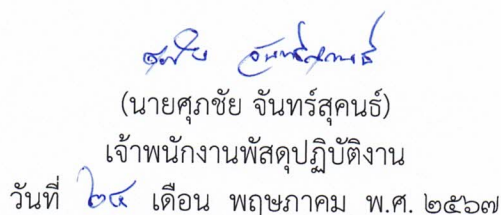 ศุภชัย จันทร์สุคนธ์
(นายศุภชัย จันทร์สุคนธ์)
เจ้าพนักงานพัสดุปฏิบัติงาน
วันที่ ๒๔ เดือน พฤษภาคม พ.ศ. ๒๕๖๗